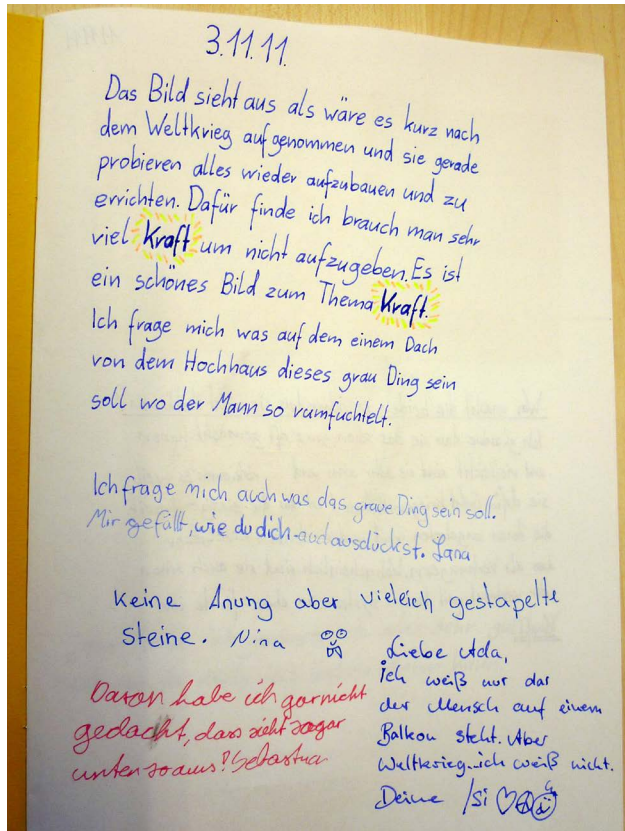 3.11.11.
Das Bild sieht aus als wäre es kurz nach
dem Weltkrieg aufgenommen und sie gerade
probieren alles wieder aufzubauen und zu
errichten. Dafür finde ich brauch man sehr
viel Kraft um nicht aufzugeben. Es ist
ein schönes Bild zum Thema Kraft.
Ich frage mich was auf dem einem Dach
von dem Hochhaus dieses grau Ding sein
soll wo der Mann so rumfuchtelt.
Ich frage mich auch was das graue Ding sein soll.
Mir gefüllt, wie du dich ausdückst. Lana
Keine Anung aber vieleich gestapelte
Steine. Nina
Daran habe ich garnicht
gedacht, dass sieht sogar
unten so aus! Sebastian
Liebe Ada,
ich weiß nur das
der Mensch auf einem
Balkon steht. Aber
Weltkrieg..ich weiß nicht.
Deine Isi